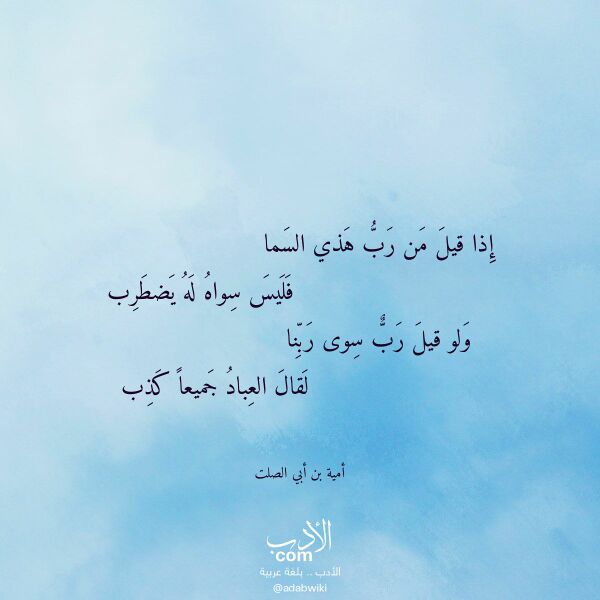 إِذا قيلَ مَن رَبُّ هَذي السَما
فَلَيسَ سِواهُ لَهُ يَضطَرِب
وَلو قيلَ رَبٌّ سِوى رَبِّنا
لَقالَ العِبادُ جَميعاً كَذِب
أمية بن أبي الصلت
الأدب
com
الأدب .. بلغة عربية
@adabwiki